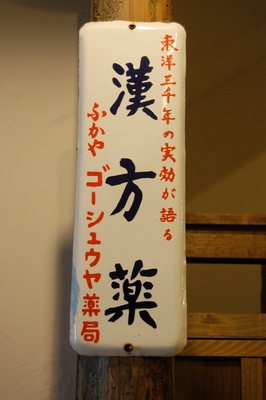 東洋三千年の実効が語る
漢方薬
ふかや ゴーシュウヤ薬局